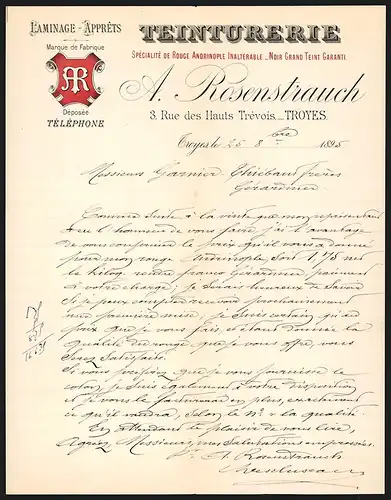 LAMINAGE - APPRÊTS
Marque de Fabrique
AR
Déposée
TÉLÉPHONE
TEINTURERIE
SPÉCIALITÉ DE ROUGE ANDRINOPLE INALTÉRABLE _ NOIR GRAND TEINT GARANTI.
A. Rosenstrauch
3, Rue des Hauts Trévois _ TROYES.
Troyes le 25 8bre 1895
Messieurs Garnier Thiébaut frères
Gérardmer
Comme suite à la visite que mon représentant
a eu l'honneur de vous faire, j'ai l'avantage
de vous confirmer le prix qu'il vous a donné
pour mon rouge Andrinople soit 1,45 net
le kilog rendu franco Gérardmer, paiement
à votre charge; je serais heureux de savoir
si je peux compter recevoir prochainement
une première mise; je suis certain qu'au
prix que je vous fais, et étant donnée la
qualité du rouge, que je vous offre, vous
serez satisfaits.
Si vous préférez que je vous fournisse le
coton, je suis également à votre disposition
et je vous le facturerai en plus, exactement
ce qu'il vaudra, selon le No & la qualité.
En attendant le plaisir de vous lire,
Agréez Messieurs, mes salutations empressées.
A. Rosenstrauch